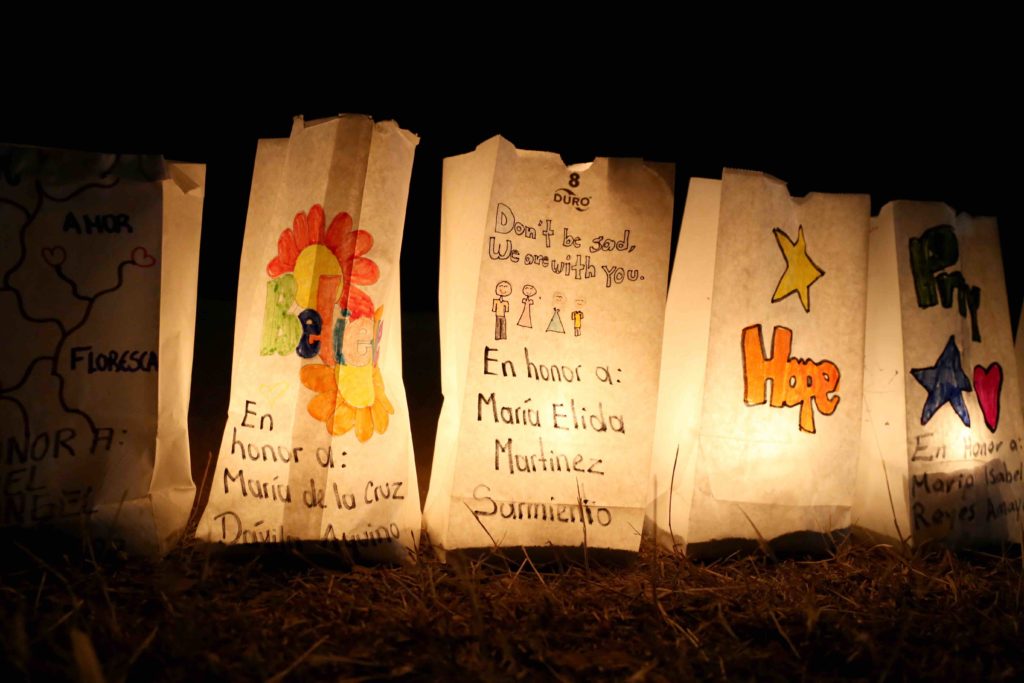 AMOR
FLORESCA
HONOR A:
Believe
En
honor a:
María de la Cruz
Dávila Aquino
8
DURO
Don't be sad,
We are with you.
En honor a:
María Elida
Martinez
Sarmiento
Hope
Pray
En Honor a:
María Isabel
Reyes Amaya